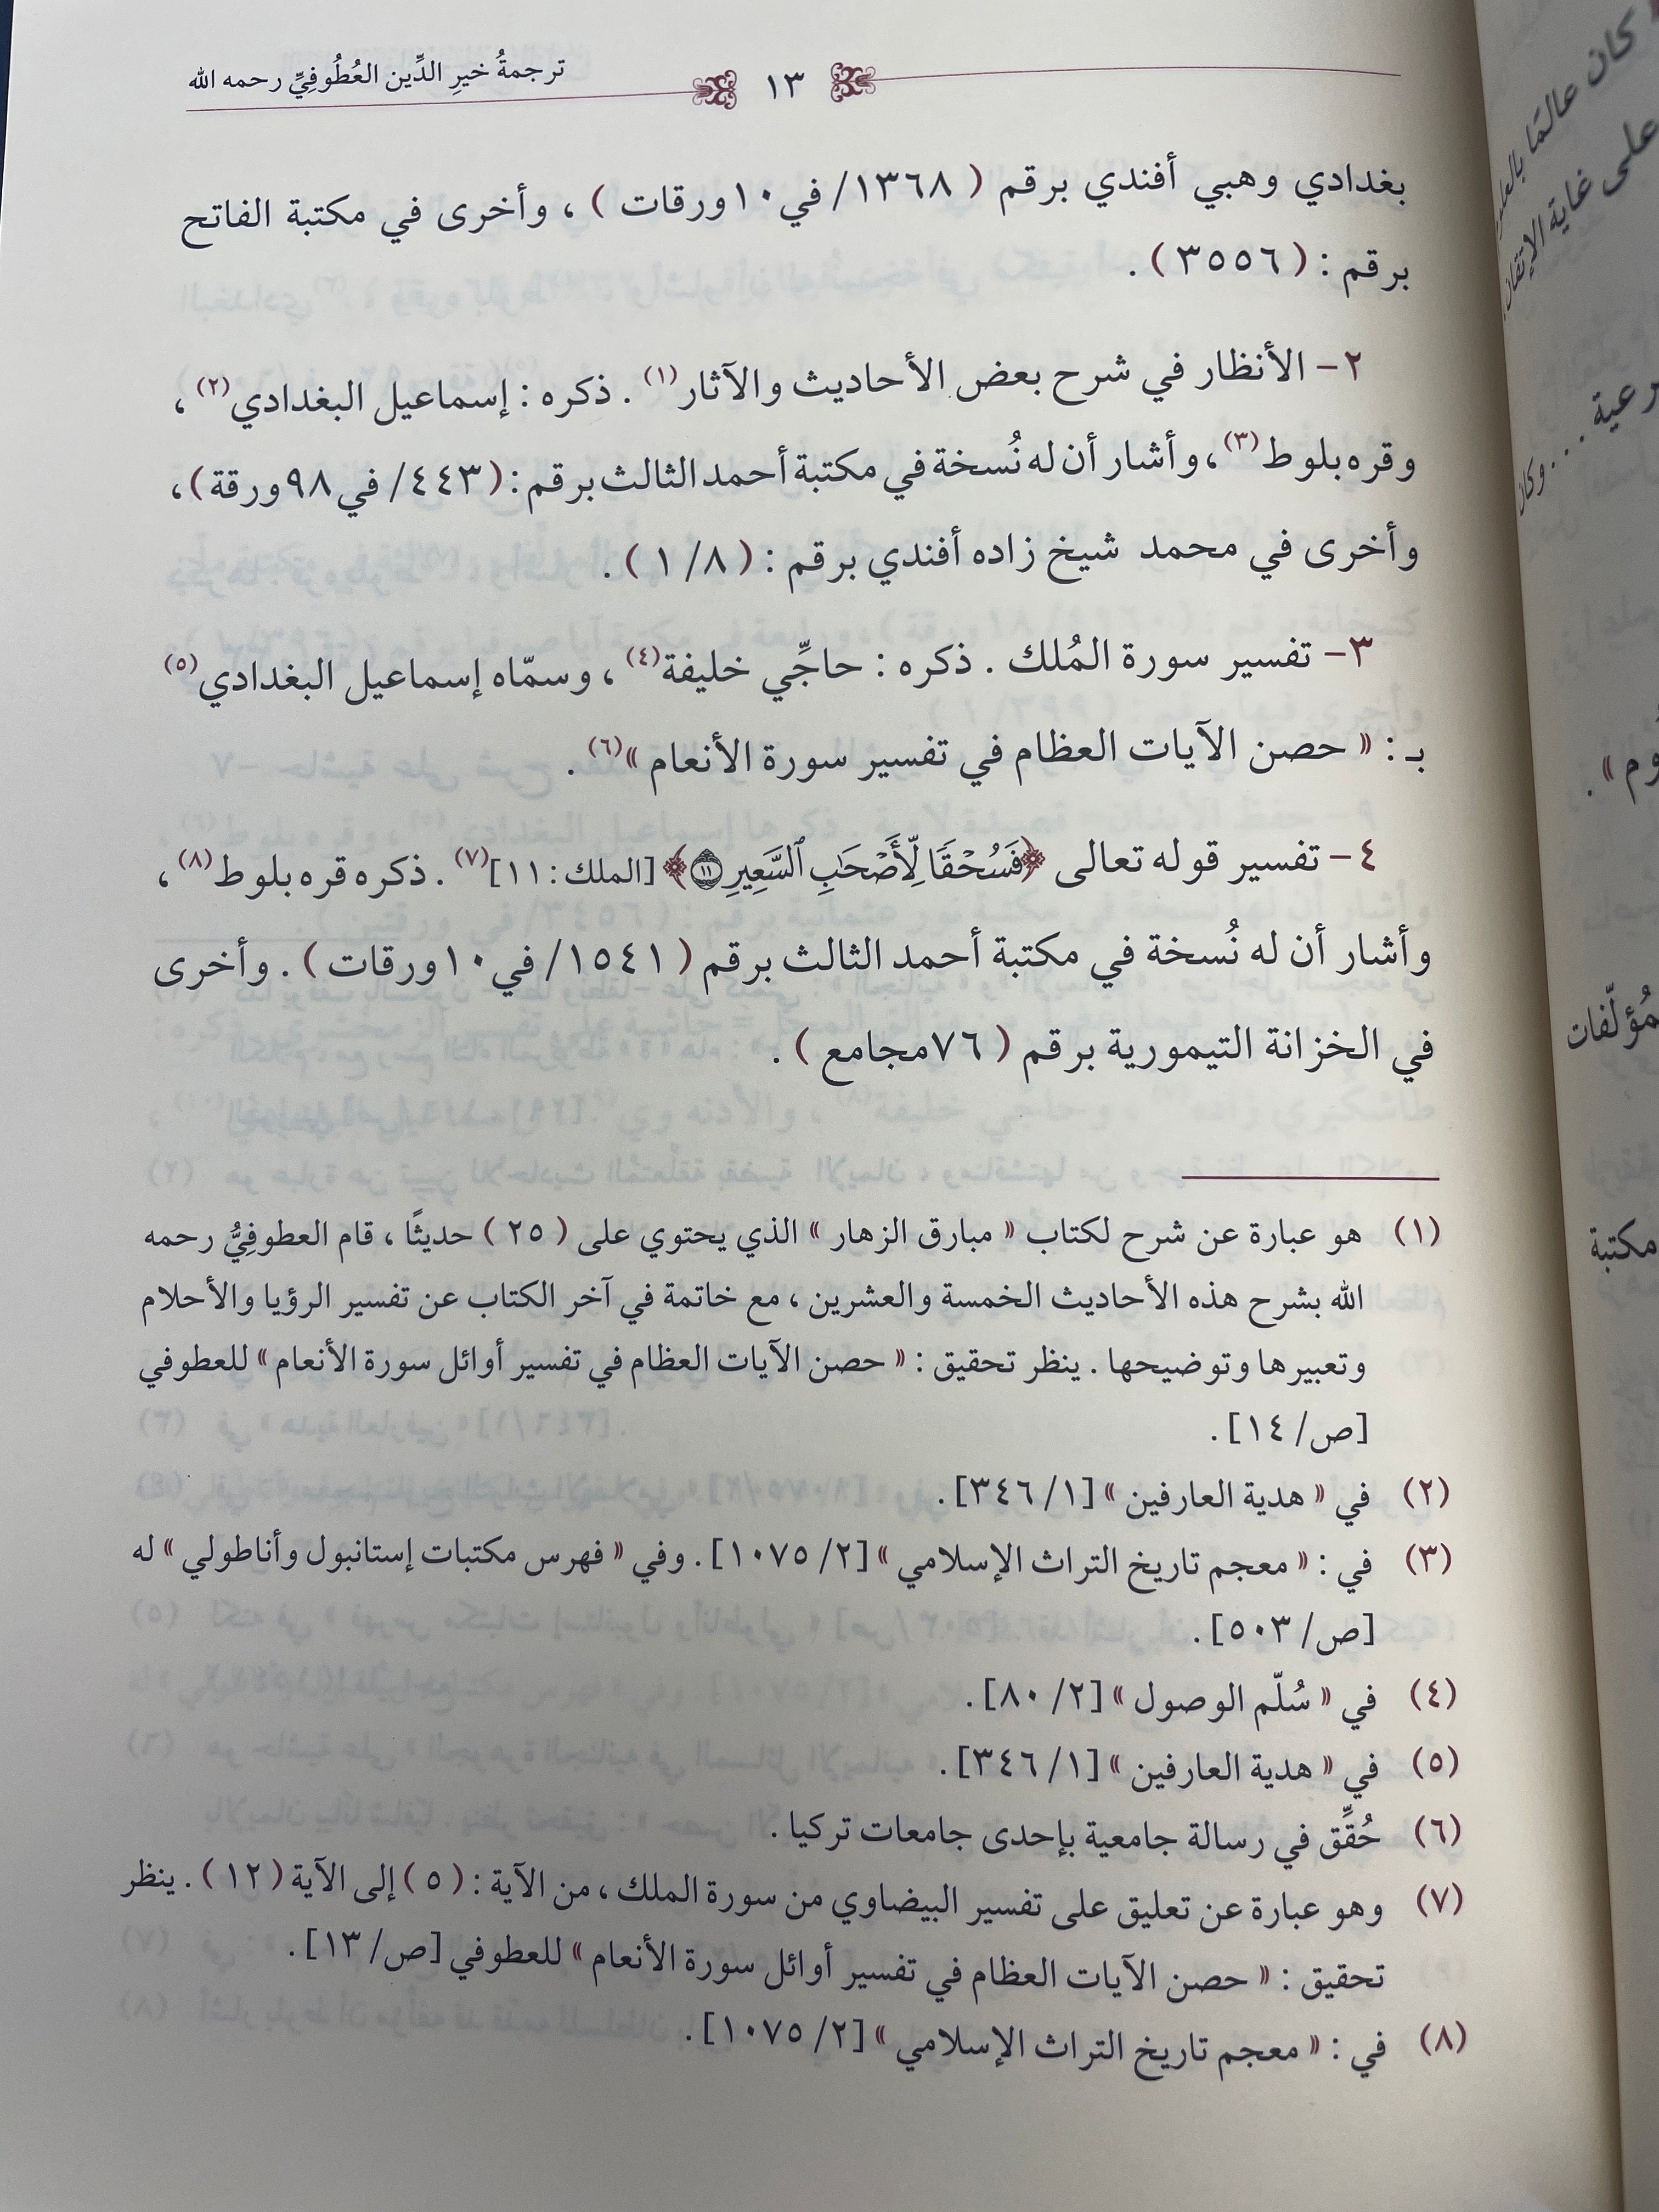 ترجمةُ خيرِ الدِّين العُطُوفِيِّ رحمه الله
١٣
بغدادي وهبي أفندي برقم ( ١٣٦٨/ في ١٠ ورقات ) ، وأخرى في مكتبة الفاتح
برقم : ( ٣٥٥٦ ) .
٢- الأنظار في شرح بعض الأحاديث والآثار(١) . ذكره : إسماعيل البغدادي(٢) ،
وقره بلوط(٣) ، وأشار أن له نُسخة في مكتبة أحمد الثالث برقم : ( ٤٤٣/ في ٩٨ ورقة ) ،
وأخرى في محمد شيخ زاده أفندي برقم : ( ٨/ ١ ) .
٣- تفسير سورة المُلك . ذكره : حاجِّي خليفة(٤) ، وسمّاه إسماعيل البغدادي(٥)
بـ : « حصن الآيات العظام في تفسير سورة الأنعام »(٦) .
٤- تفسير قوله تعالى ﴿فَسُحۡقٗا لِّأَصۡحَٰبِ ٱلسَّعِيرِ ١١﴾ [الملك : ١١](٧) . ذكره قره بلوط(٨) ،
وأشار أن له نُسخة في مكتبة أحمد الثالث برقم ( ١٥٤١/ في ١٠ ورقات ) . وأخرى
في الخزانة التيمورية برقم ( ٧٦ مجامع ) .
(١) هو عبارة عن شرح لكتاب « مبارق الزهار » الذي يحتوي على ( ٢٥ ) حديثًا ، قام العطوفِيُّ رحمه
الله بشرح هذه الأحاديث الخمسة والعشرين ، مع خاتمة في آخر الكتاب عن تفسير الرؤيا والأحلام
وتعبيرها وتوضيحها . ينظر تحقيق : « حصن الآيات العظام في تفسير أوائل سورة الأنعام » للعطوفي
[ص/ ١٤] .
(٢) في « هدية العارفين » [١/ ٣٤٦] .
(٣) في : « معجم تاريخ التراث الإسلامي » [٢/ ١٠٧٥] . وفي « فهرس مكتبات إستانبول وأناطولي » له
[ص/ ٥٠٣] .
(٤) في « سُلّم الوصول » [٢/ ٨٠] .
(٥) في « هدية العارفين » [١/ ٣٤٦] .
(٦) حُقِّق في رسالة جامعية بإحدى جامعات تركيا .
(٧) وهو عبارة عن تعليق على تفسير البيضاوي من سورة الملك ، من الآية : ( ٥ ) إلى الآية ( ١٢ ) . ينظر
تحقيق : « حصن الآيات العظام في تفسير أوائل سورة الأنعام » للعطوفي [ص/ ١٣] .
(٨) في : « معجم تاريخ التراث الإسلامي » [٢/ ١٠٧٥] .
كان عالمًا
على غاية الإتقان
وكان
مكتبة